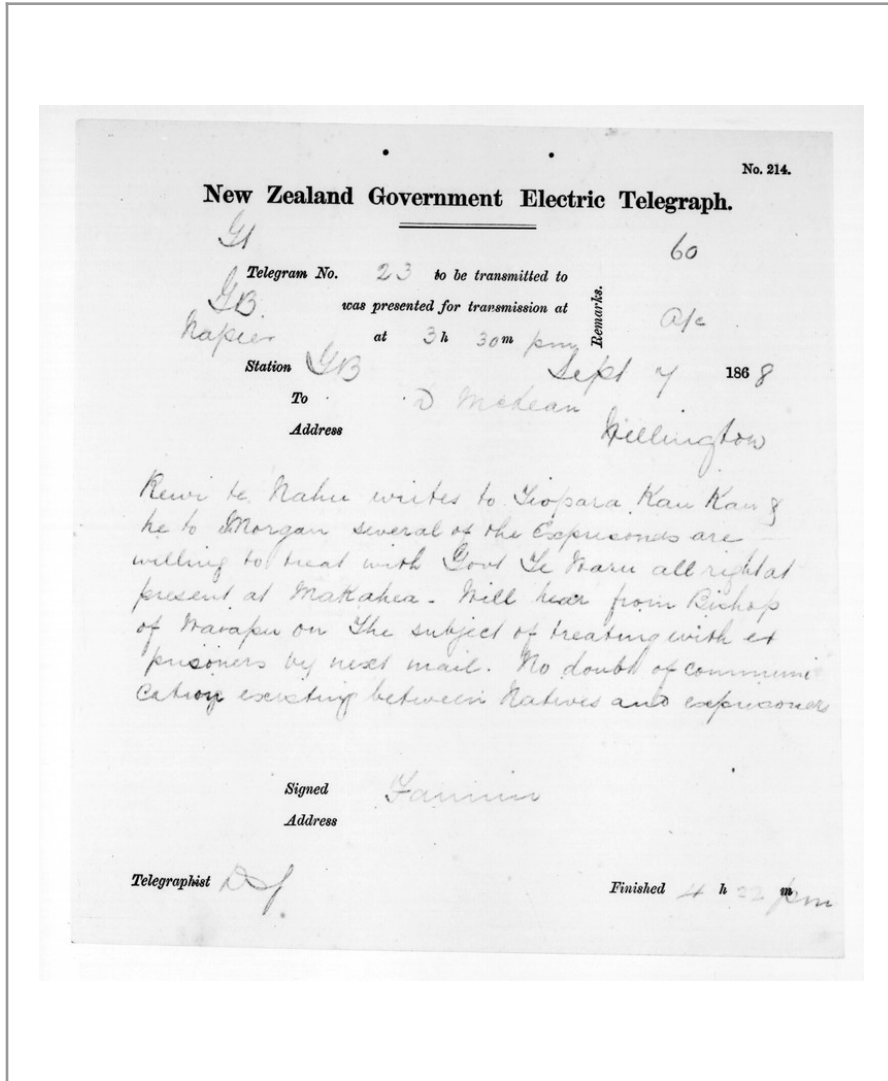 No. 214.
New Zealand Government Electric Telegraph.
60
Telegram No. 23 to be transmitted to
GB was presented for transmission at
Remarks.
Napier at 3h 30m pm
Station GB Sept 7 1868
To D McLean
Address Wellington
Rewi te Nahu writes to Tiopara Kau Kau &
he to Morgan several of the Exprisoners are
willing to treat with Govt Te Waru all right at
present at Makahea - Will hear from Bishop
of Waiapu on The subject of treating with ex
prisoners by next mail. No doubt of communi
cation existing between Natives and exprisoners
Signed Fannin
Address
Telegraphist
Finished 4 h 22 m pm